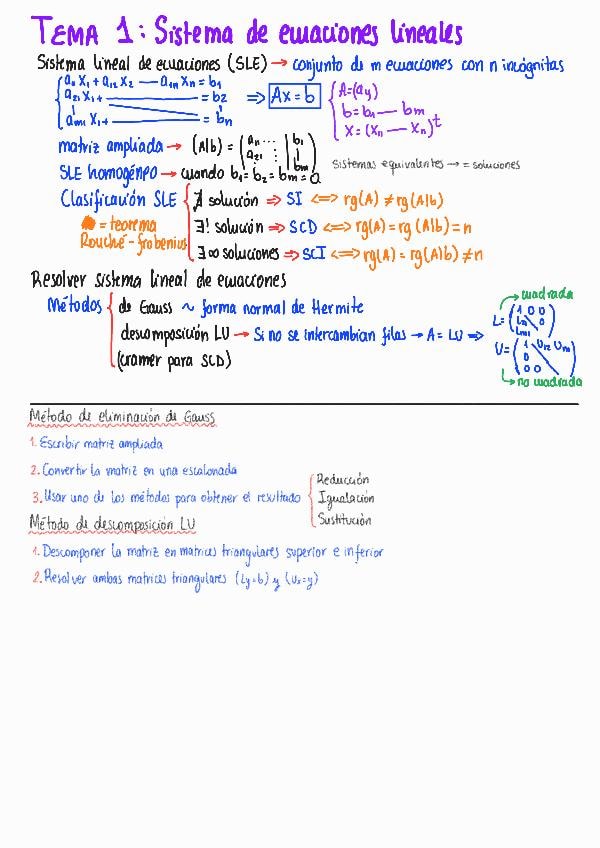 TEMA 1: Sistema de ecuaciones lineales
Sistema lineal de ecuaciones (SLE) → conjunto de m ecuaciones con n incógnitas
a11 X1 + a12 X2 — a1n Xn = b1
a21 X1 + = b2
am1 X1 + = bn
⇒ Ax = b
A=(aij)
b = b1 — bm
X = (Xn — Xn)t
matriz ampliada → (A|b) = (a11 ... | b1 a21 ⋮ | bm)
SLE homogéneo → cuando b1 = b2 = bm = 0
Sistemas equivalentes → = soluciones
Clasificación SLE
∄ solución ⇒ SI ⟺ rg(A) ≠ rg(A|b)
∃! solución ⇒ SCD ⟺ rg(A) = rg(A|b) = n
∃∞ soluciones ⇒ SCI ⟺ rg(A) = rg(A|b) ≠ n
= teorema
Rouché-frobenius
Resolver sistema lineal de ecuaciones
Métodos
de Gauss ~ forma normal de Hermite
descomposición LU → Si no se intercambian filas → A = LU ⇒
(cramer para SCD)
cuadrada
L = (1 0 0
0
Lm1
U = (1 U12 U1n
0
0 0
no cuadrada
Método de eliminación de Gauss
1. Escribir matriz ampliada
2. Convertir la matriz en una escalonada
3. Usar uno de los métodos para obtener el resultado
Reducción
Igualación
Sustitución
Método de descomposición LU
1. Descomponer la matriz en matrices triangulares superior e inferior
2. Resolver ambas matrices triangulares (Ly=b) y (Ux=y)